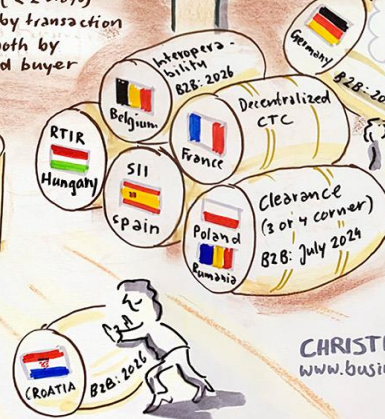 by transaction
oth by
d buyer
Interopera-
bility
B2B: 2026
Belgium
Germany
B2B: 20
Decentralized
CTC
France
RTIR
Hungary
SII
Spain
Clearance
(3 or 4 corner)
B2B: July 2024
Poland
Rumania
CROATIA
B2B: 2026
CHRISTI
www.busi